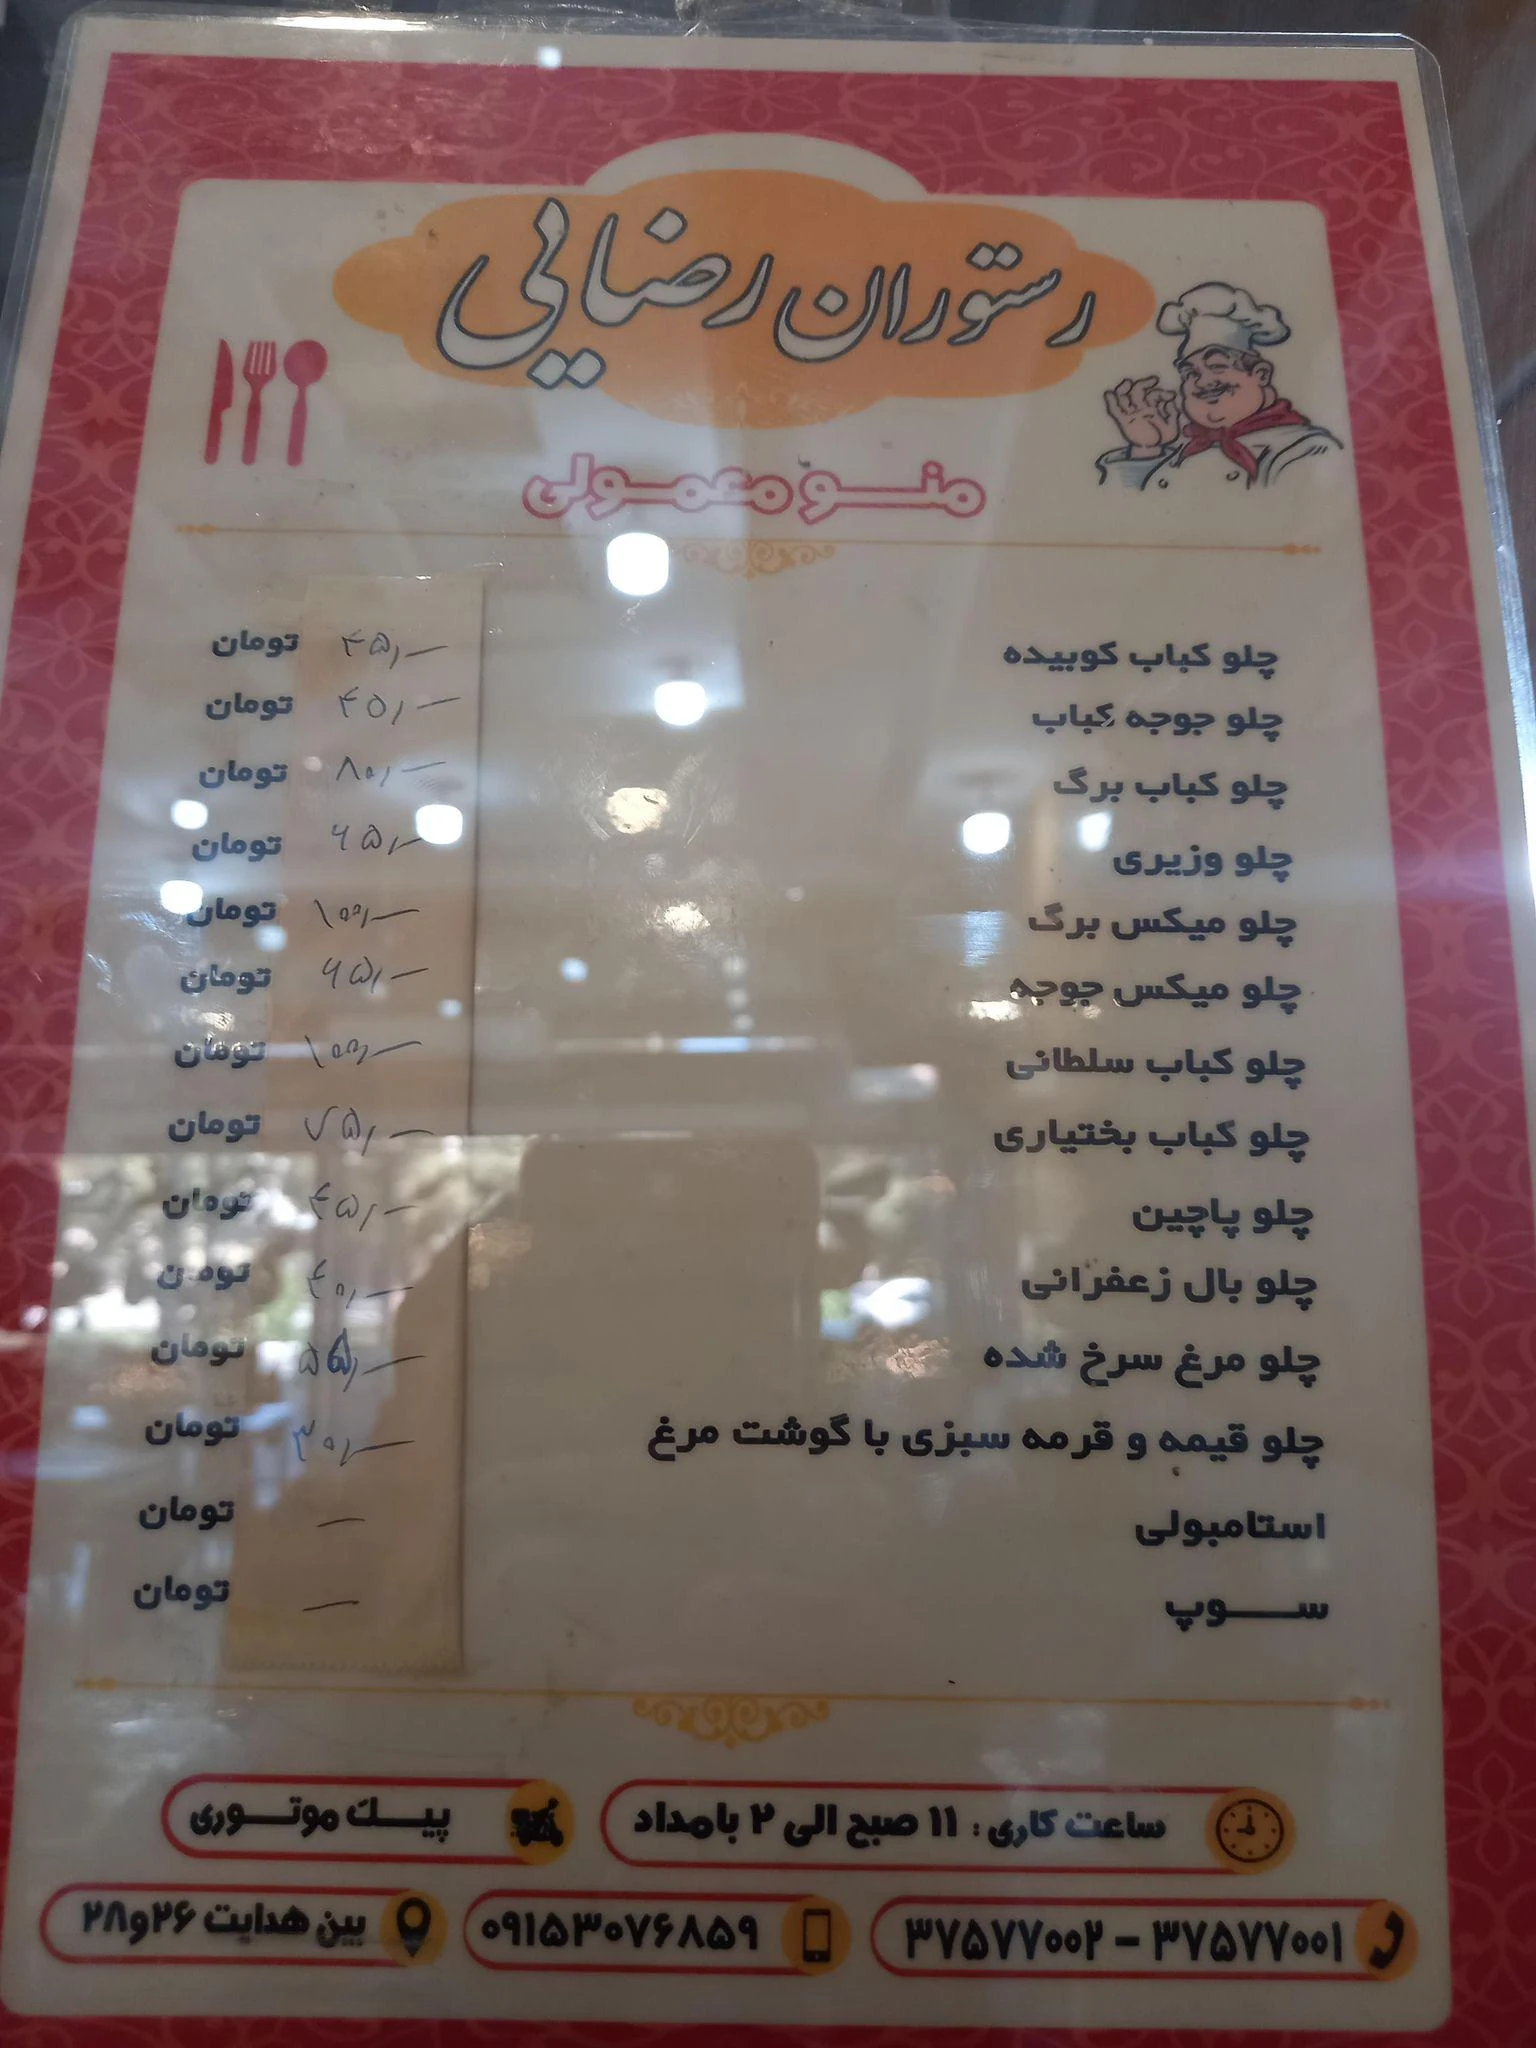 رستوران رضایی
منو معمولی
چلو کباب کوبیده ۴۵/— تومان
چلو جوجه کباب ۴۵/— تومان
چلو کباب برگ ۸۰/— تومان
چلو وزیری ۶۵/— تومان
چلو میکس برگ ۱۰۰/— تومان
چلو میکس جوجه ۶۵/— تومان
چلو کباب سلطانی ۱۰۰/— تومان
چلو کباب بختیاری ۷۵/— تومان
چلو پاچین ۴۵/— تومان
چلو بال زعفرانی ۴۰/— تومان
چلو مرغ سرخ شده ۵۵/— تومان
چلو قیمه و قرمه سبزی با گوشت مرغ ۳۰/— تومان
استامبولی — تومان
سوپ — تومان
ساعت کاری : ۱۱ صبح الی ۲ بامداد
پیک موتوری
۳۷۵۷۷۰۰۱ - ۳۷۵۷۷۰۰۲
۰۹۱۵۳۰۷۶۸۵۹
بین هدایت ۲۶و۲۸